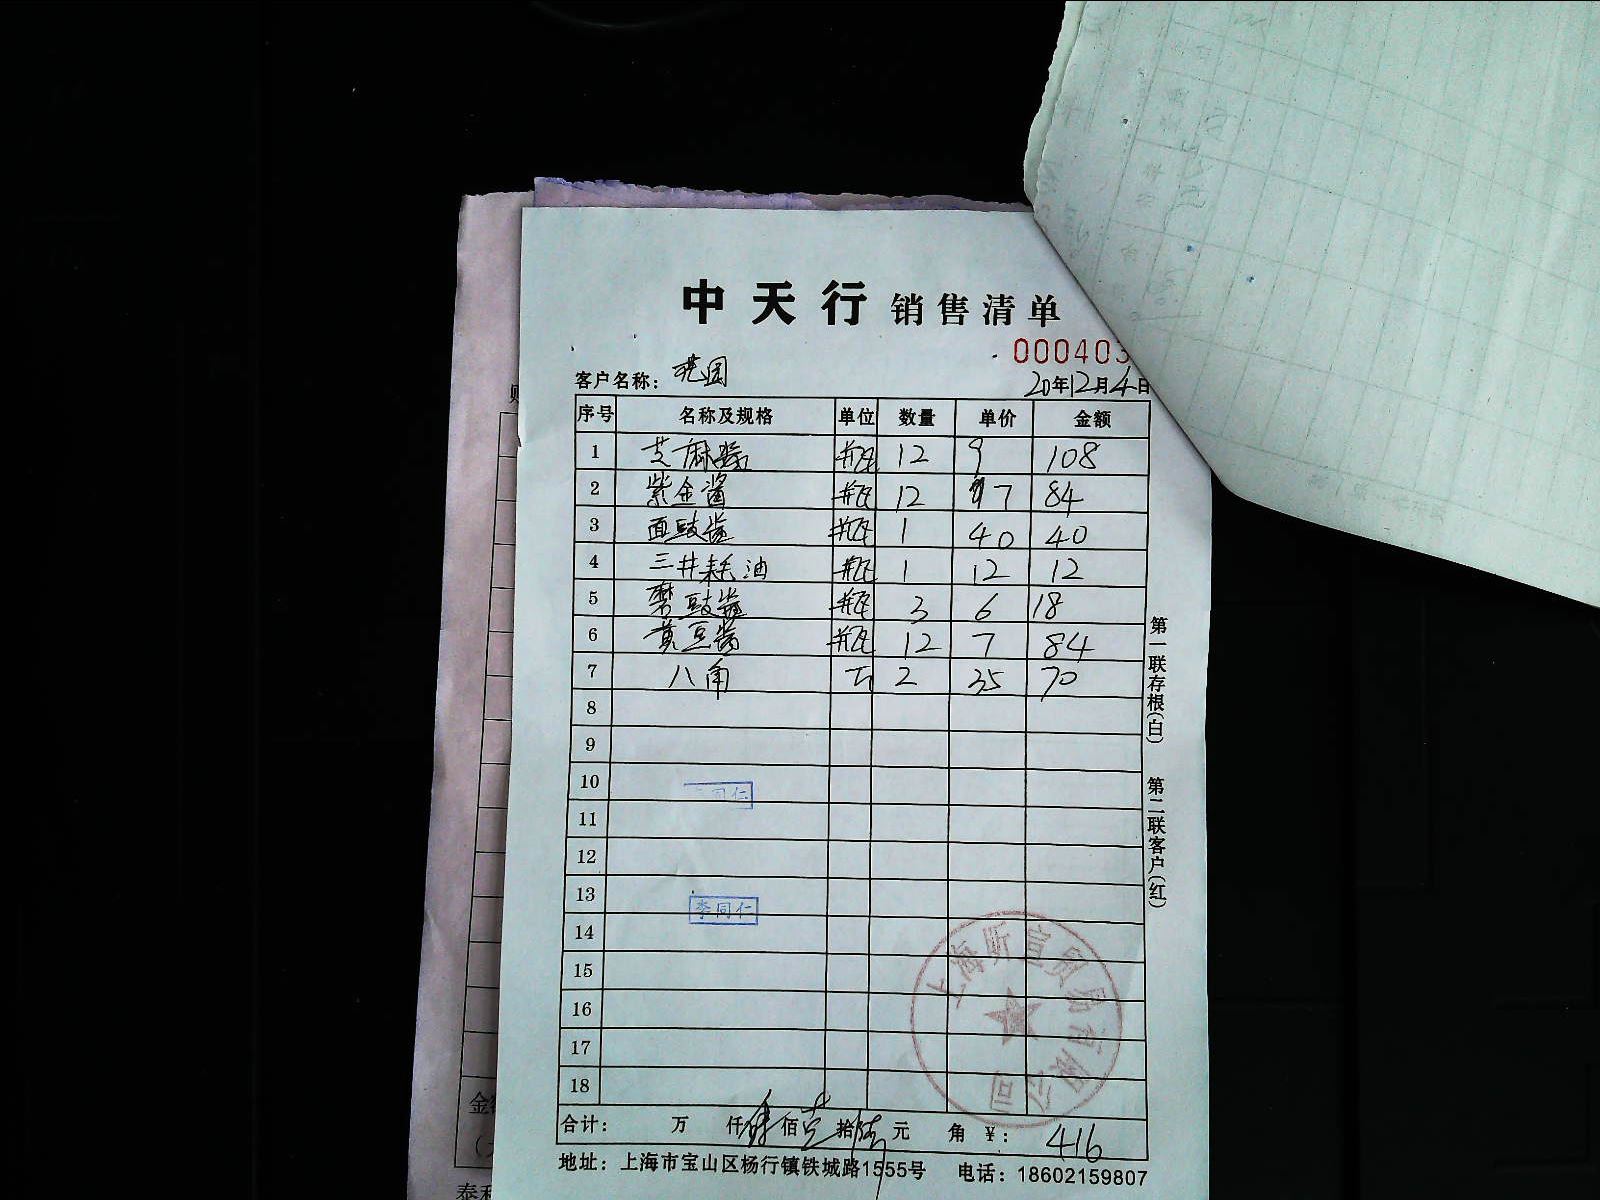 中天行 销售清单
000403
客户名称: 20年12月4日
序号 名称及规格 单位 数量 单价 金额
1 芝麻酱 瓶 12 9 108
2 紫金酱 瓶 12 7 84
3 面豉酱 瓶 1 40 40
4 三井耗油 瓶 1 12 12
5 磨豉酱 瓶 3 6 18
6 黄豆酱 瓶 12 7 84
7 八角 斤 2 35 70
8
9
10
同仁
11
12
13
李同仁
14
15
16
17
18
上海昕宣贸易有限公司
合计: 万 仟肆佰壹拾陆元 角 ¥: 416
地址: 上海市宝山区杨行镇铁城路1555号 电话: 18602159807
第一联存根(白) 第二联客户(红)